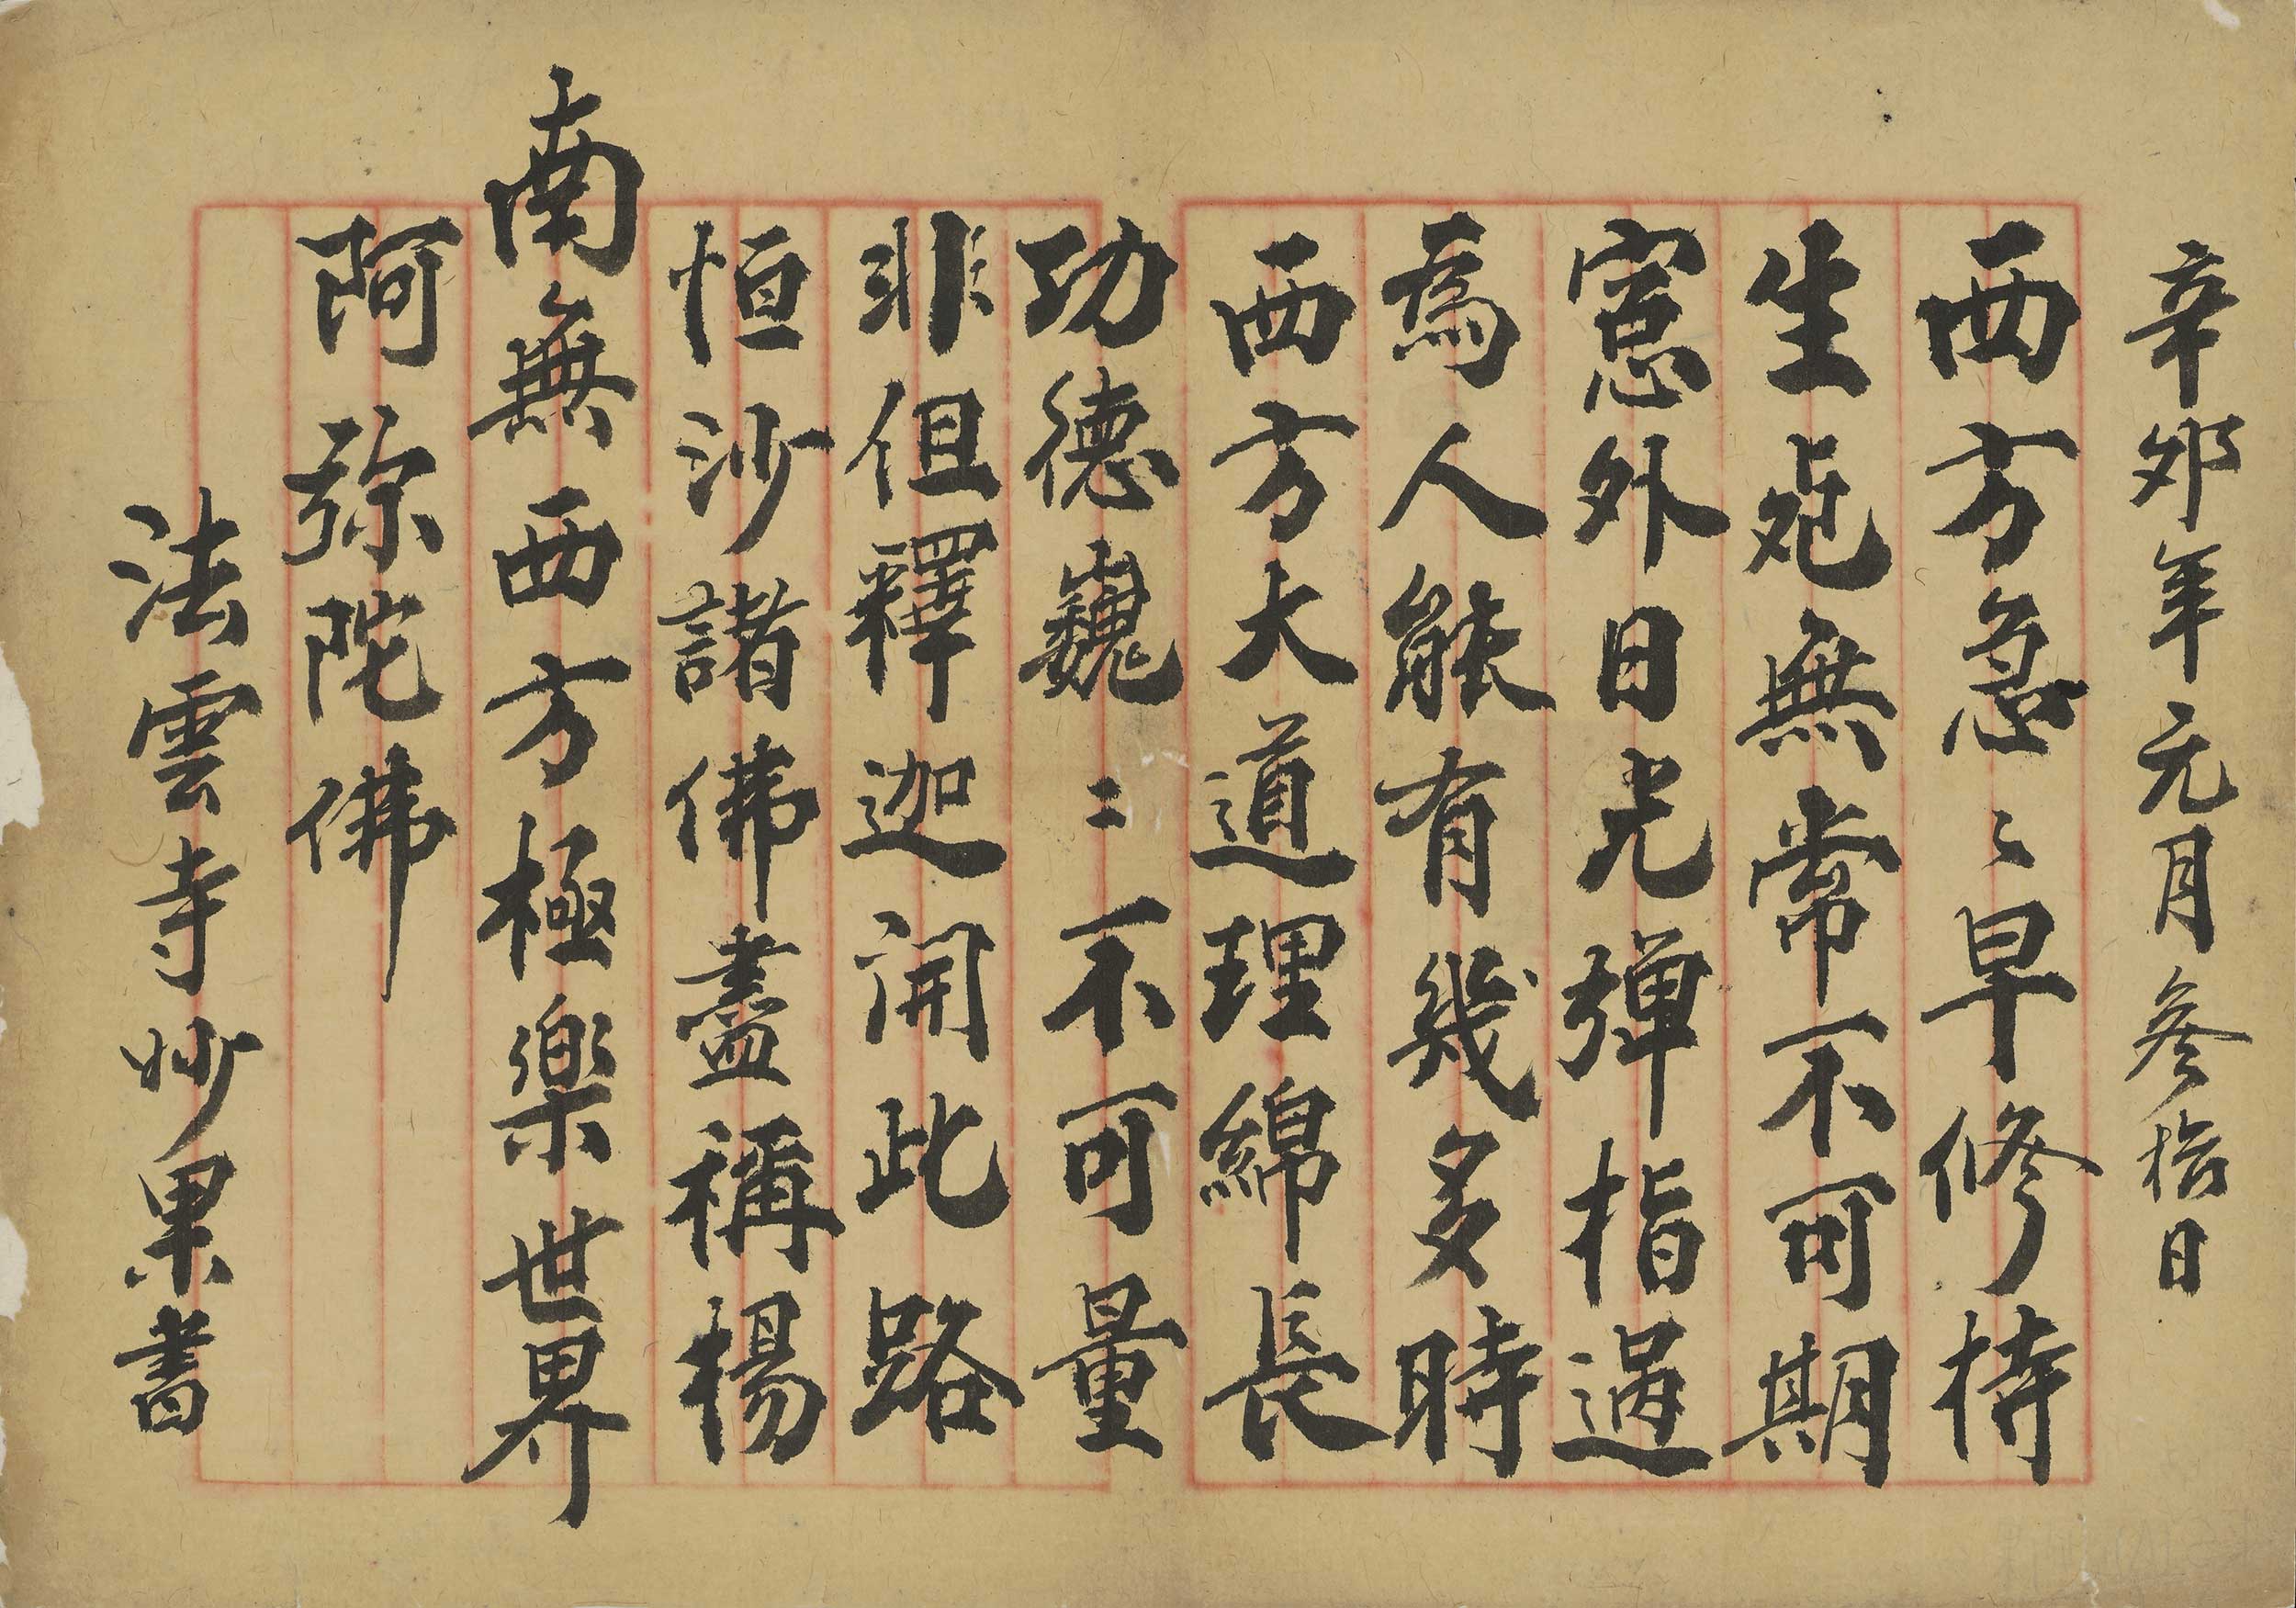 辛夘年元月叄拾日
西方急〻早修持
生死無常不可期
窓外日光彈指過
為人能有幾多時
西方大道理綿長
功德巍〻不可量
非但釋迦開此路
恒沙諸佛盡稱揚
南無西方極楽世界
阿弥陀佛
法雲寺妙果書